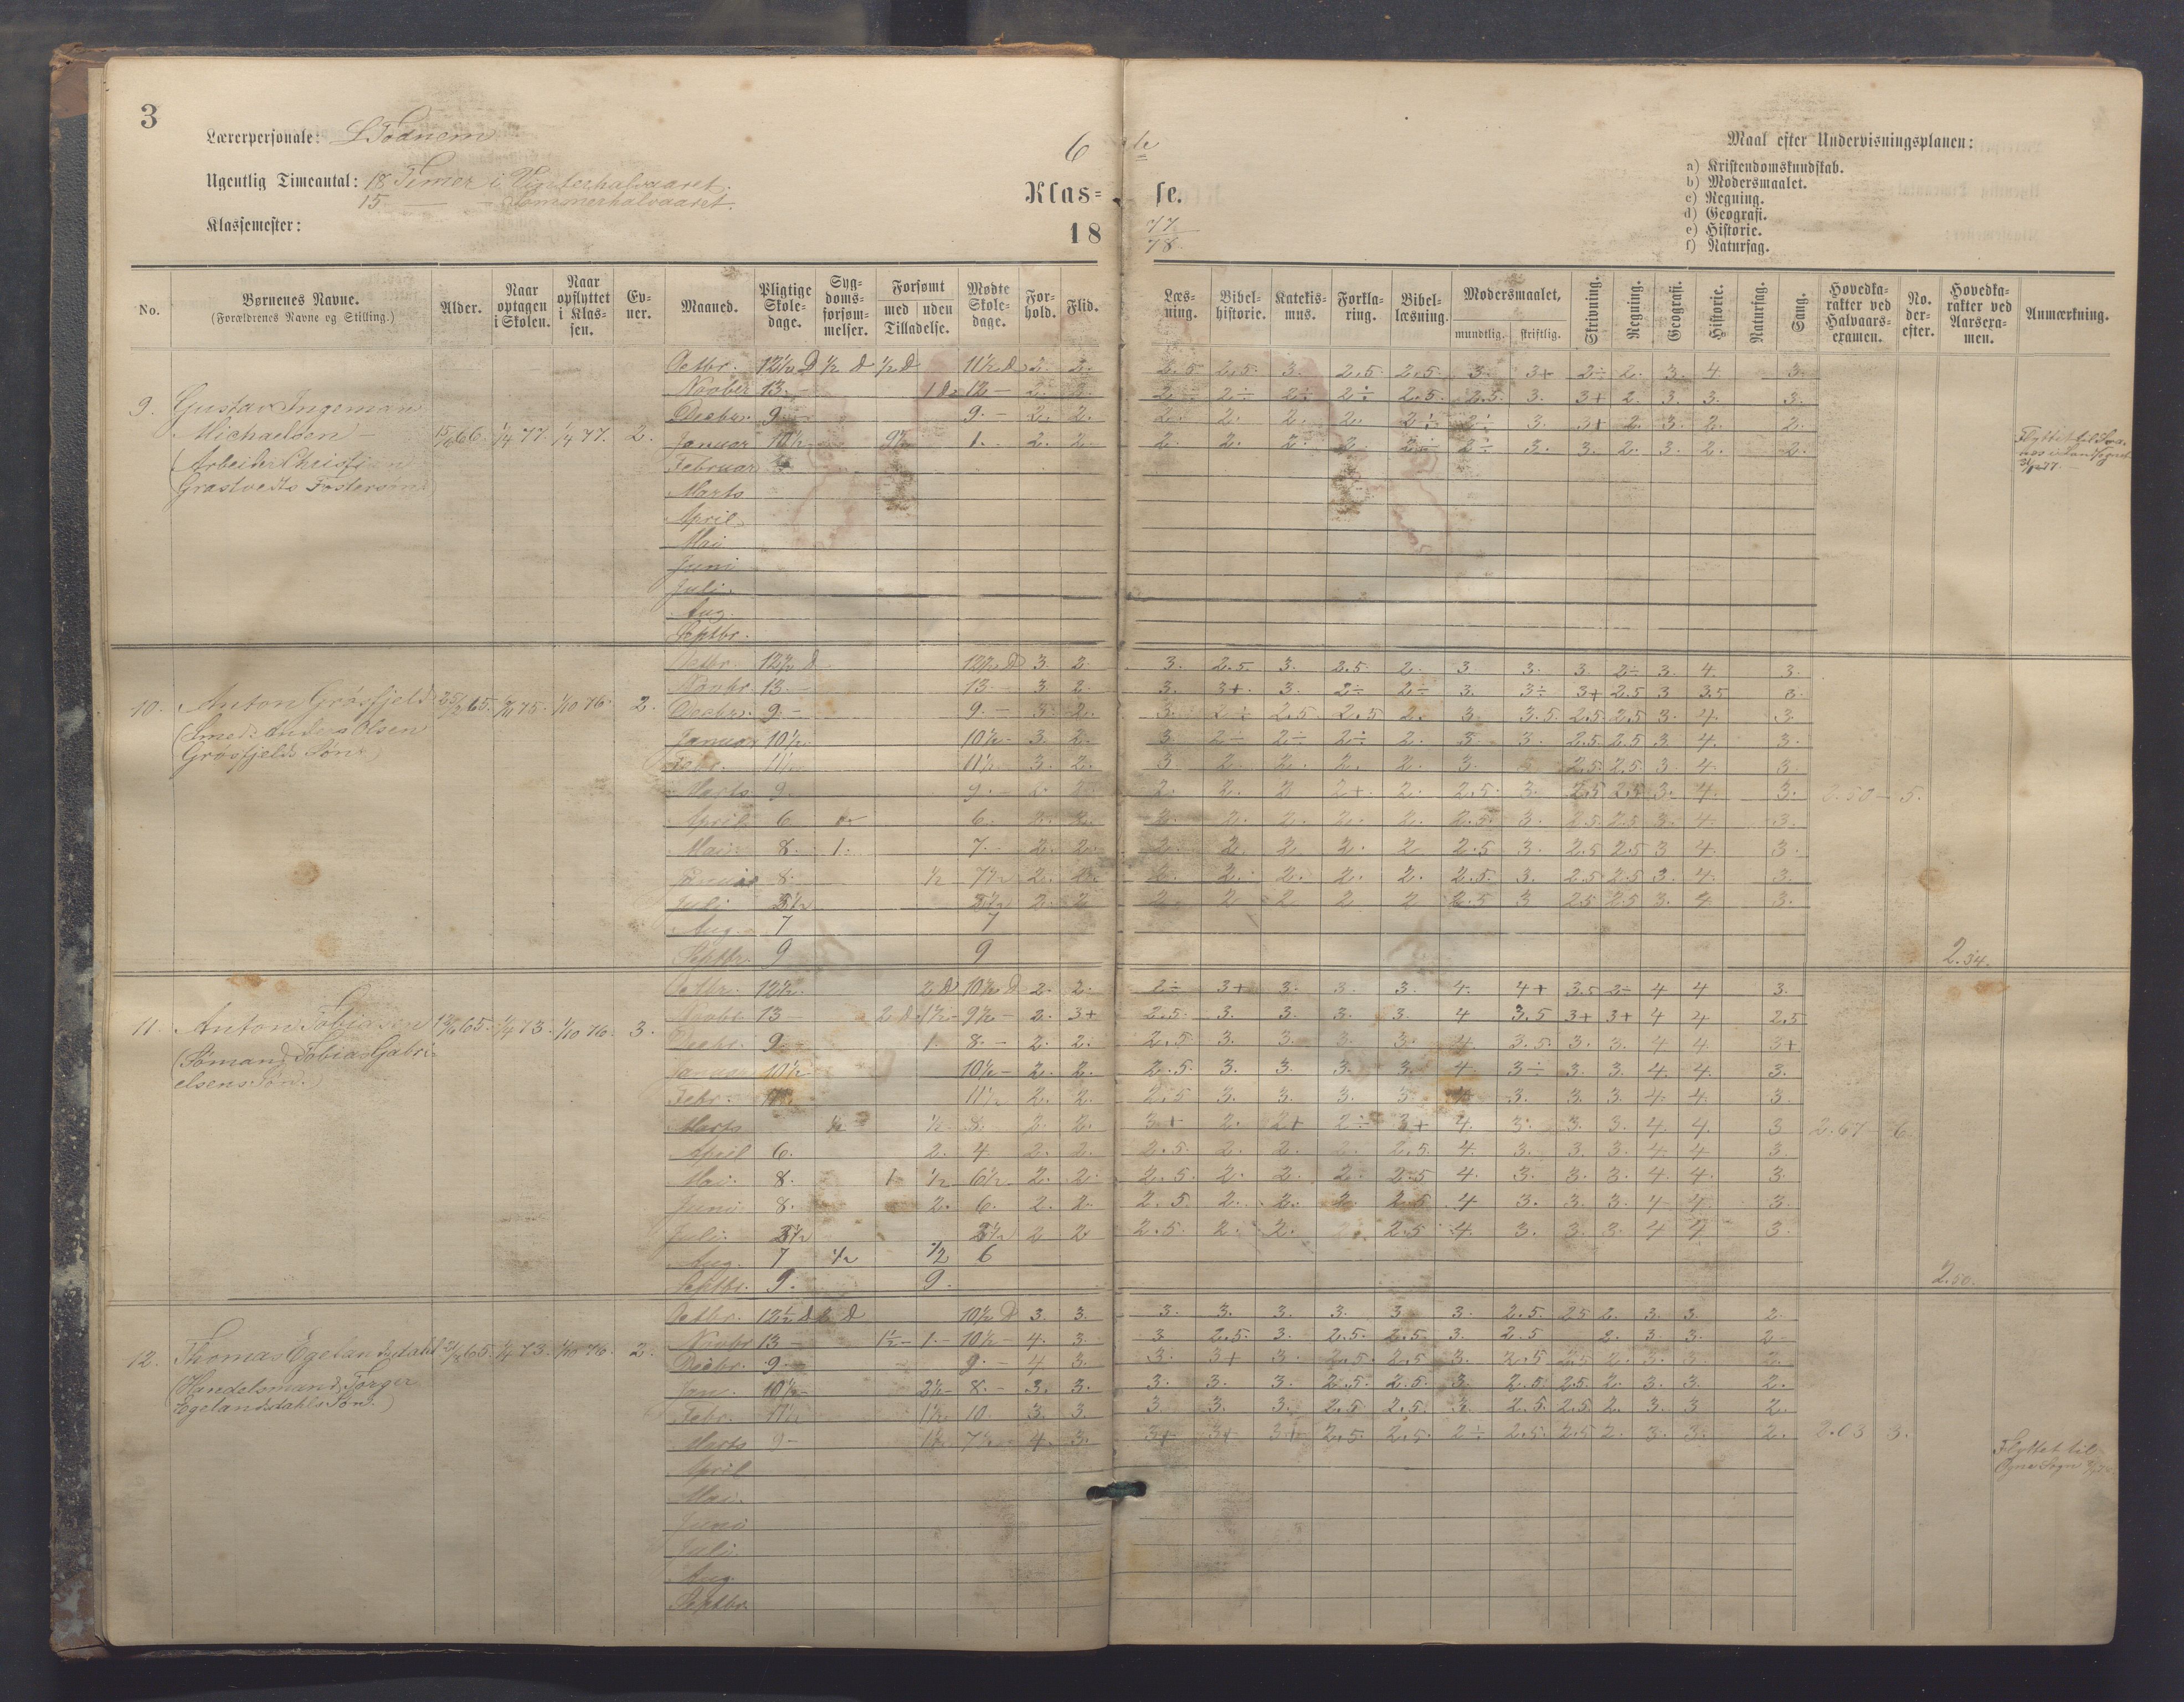 3
Lærerpersonale: L Todnem
6 te
Maal efter Undervisningsplanen:
a) Kristendomskundskab.
b) Modersmaalet.
c) Regning.
d) Geografi.
e) Historie.
f) Naturfag.
Ugentlig Timeantal: 18 Timer i Vinterhalvaaret.
15 — - Sommerhalvaaret.
Klas= se.
Klassemester:
18 77/78
No. Børnenes Navne. (Forældrenes Navne og Stilling.) Alder. Naar optagen i Skolen. Naar opflyttet i Klassen. Evner. Maaned. Pligtige Skoledage. Sygdomsforsømmelser. Forsømt med uden Tilladelse. Mødte Skoledage. Forhold. Flid. Læsning. Bibelhistorie. Katekismus. Forklaring. Bibellæsning. Modersmaalet, mundtlig. skriftlig. Skrivning. Regning. Geografi. Historie. Naturfag. Sang. Hovedkarakter ved Halvaarsexamen. No. derefter. Hovedkarakter ved Aarsexamen. Anmærkning.
Octbr. 12½ D ½ d ½ d 11½ D 2. 2. 2.5 2.5. 3. 2.5. 2.5 3. 3+ 2÷ 2. 3. 4. 3.
9. Gustav Ingeman
Novber 13. - 1 d. 12 - 2. 2. 2÷ 2÷ 2÷ 2÷ 2.5 2.5. 3. 3+ 2. 3. 3. 3.
Michaelsen -
15/ 66. 1/4 77. 1/4 77. 2.
Decbr. 9. - 9. - 2. 2. 2. 2. 2. 2. 2÷ 2÷ 3. 3+ 2. 3. 2. 2.
Januar 10½ 9½ 1. 2. 2. 2. 2. 2. 2. 2÷ 2÷ 3. 3. 2. 3. 2. 2.
(Arbeider Christian
Grastvedts Fostersøn.)
Flyttet til
Februar
Marts
April
Mai
Juni
Juli.
Aug.
Septbr.
Octbr. 12½ d 12½ D 3. 2. 3. 2.5. 3. 2.5. 2. 3 3. 3 2÷ 3. 4. 3.
10. Anton Grøsfjeld 25/2 65. 75. 1/10 76. 2.
Novbr. 13. - 13. - 3. 2. 3. 3+. 3. 2÷ 2÷ 3. 3÷ 3+ 2.5 3 3.5 3.
(Smed Anders Olsen
Grøsfjelds Søn.)
Decbr. 9. - 9. - 3. 2. 3. 2÷ 2.5. 2.5 2. 3. 3.5. 2.5. 2.5 3. 4. 3.
Januar 10½ 10½- 3. 2. 3. 2÷ 2÷ 2÷ 2. 3. 3. 2.5 2.5 3. 4. 3.
Febr. 11½ 11½ 3. 2. 3 2. 2. 2. 2. 3. 2.5. 2.5. 3 4. 3
Marts 9. 9. - 2. 2. 2. 2 2+. 2. 2.5. 3. 2.5 2.5 3. 4. 3. 2.50 - 5.
April 6. 6. 2. 2. 2. 2. 2. 2. 2. 2.5. 3. 2.5. 2.5 3. 4. 3.
Mai. 8. 1. 7. 2. 2. 2. 2. 2. 2. 2 2.5 3. 2.5 2.5 3 4. 3.
8. ½ 7½ 2. 2. 2. 2. 2. 2. 2. 2.5. 3. 2.5 2.5 3. 4. 3.
Juli 3½ 3½ 2. 2 2. 2 2 2 2 2.5 3 2.5 2.5 3. 4. 3.
Aug. 7 7
Septbr. 9 9 2.34.
Octbr. 12½. 2 d 10½ D 2. 2. 2÷ 3+ 3. 3. 3. 4. 4+ 3.5 2÷ 4 4 3.
11. Anton Tobiasen 65. 1/4 73. 1/10 76. 3.
Novbr. 13 - 2 d. 1½- 9½ - 2. 3+ 2.5. 3. 3. 3. 3. 4 3.5 3+ 3+ 4 4 2.5
(Sømand Tobias Gabri-
elsens Søn.)
Decbr. 9. 1. 8. - 2. 2. 2.5 3. 3. 3. 3. 4. 3.5. 3. 3. 4. 4. 3+
Januar 10½ 10½ - 2. 2. 2.5. 3. 3. 3. 3. 4. 3÷ 3. 3. 4. 4. 3.
Febr. 11½ 11½ 2. 2. 2.5 3. 3. 3. 3 4 3. 3. 3. 4. 4. 3.
Marts ½ ½ 8. 2. 2. 3+ 2. 2+ 2÷ 3+ 4. 3. 3. 3. 4. 4. 3 2.67 6
April 6. 2. 4. 2. 2. 2.5. 2. 2. 2. 2.5. 4. 3. 3. 3. 4 4 3.
Mai. 8. 1. ½ 6½. 2. 2. 2.5. 2. 2. 2. 2.5 4. 3. 3. 3. 4 4. 3.
Juni 8. 2. 6. 2. 2. 2.5 2. 2. 2. 2.5 4 3. 3. 3. 4 4. 3.
Juli. 3½ 3½ 2 2 2.5. 2. 2. 2 2.5 4. 3. 3. 3. 4 4 3.
Aug. 7 ½ ½ 6
Septbr. 9. 9. 2.50.
Octbr. 12½ d 2 d 10½ D 3. 3. 3. 3. 3. 3. 3 3. 2.5. 2.5 2. 3. 3. 2.
12. Thomas Egelandsdahl 65. 1/4 73. 1/10 76. 2.
Novbr 13 - 1½ - 1. - 10½ - 4. 3. 3 2.5. 3. 2.5. 2.5. 3. 2.5 2. 3. 3. 2-
(Handelsmand Torger
Egelandsdahls Søn.)
Decbr. 9. - 9. - 4 3. 3. 3+ 3. 2.5. 2.5 3. 2.5 2.5 2. 3. 3. 2.
Jan. 10½- 2½- 8. - 3. 3. 3. 3. 3. 2.5. 2.5. 3. 2.5. 2.5. 2. 3. 3. 2.
Febr. 11½ 1½ 10. 3. 3. 3. 3. 3. 2.5 2.5. 3. 2.5. 2.5. 2. 3. 3 2.
Marts 9- 1½ 7½ 4. 3. 3+ 3+ 3+ 2.5. 2.5. 2÷ 2.5. 2.5 2. 3. 3. 2. 2.03 3.
Flyttet til
Ogne Sogn
April
Mai.
Juni
Juli.
Aug.
Septbr.